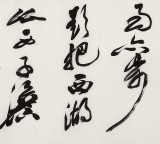 雨亦奇
欲把西湖
比西子